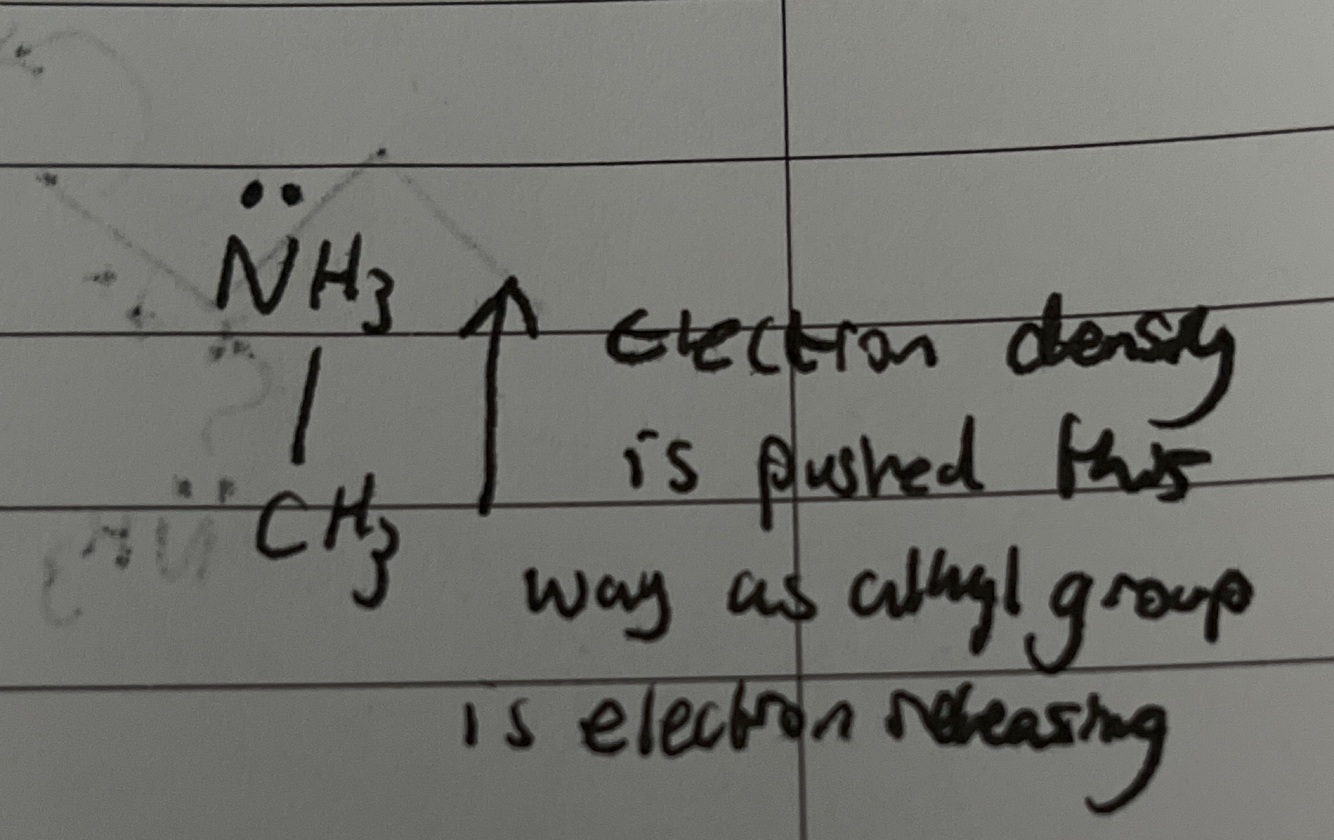 ••
NH3
|
CH3
Electron density
is pushed this
way as alkyl group
is electron releasing